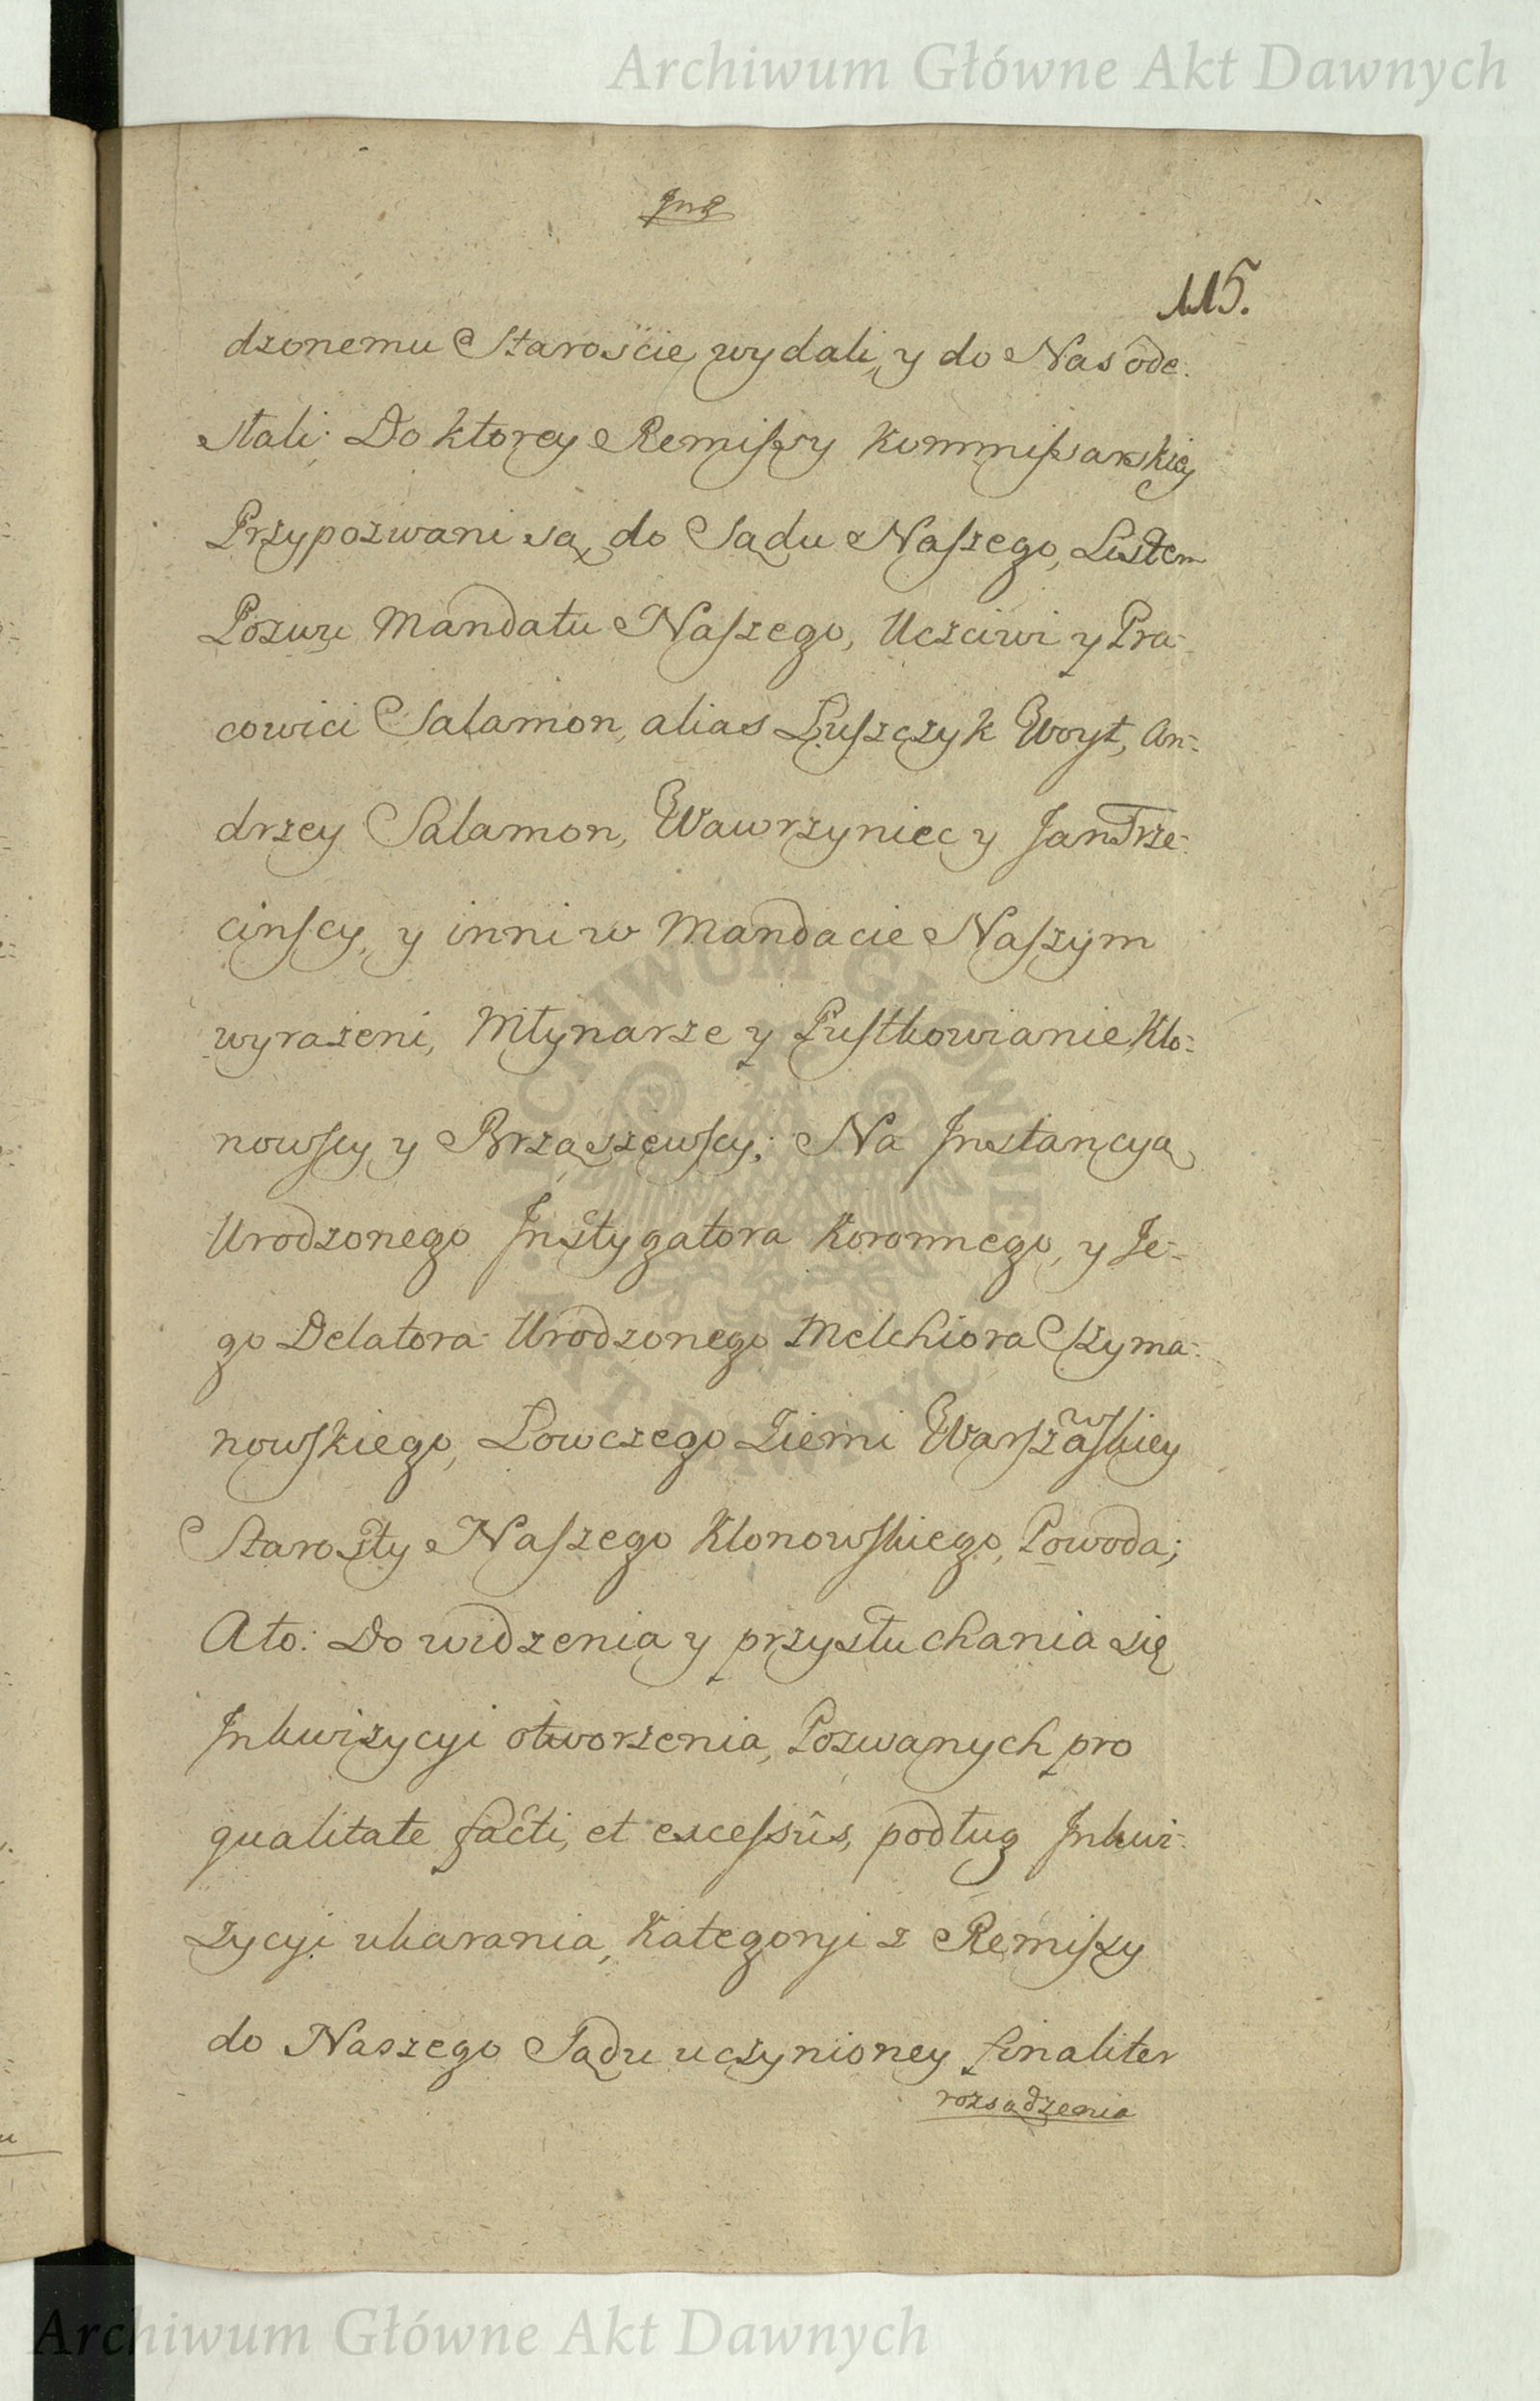 Archiwum Główne Akt Dawnych
115.
dzonemu Starościе wydali, y do Nas ode-
słali: Do ktorey Remissy Kommissarskiey
Przypozwani są do Sądu Naszego, Listem
Pozwu Mandatu Naszego, Uczciwi y Pra-
cowici Salamon, alias Luszczyk Woyt, An-
drzey Salamon, Wawrzyniec y Jan Trze-
cinscy, y inni w Mandacie Naszym
wyrażeni, Młynarze y Pustkowianie Klo-
nowscy y Brząszewscy; Na Instancyą
Urodzonego Instygatora Koronnego, y Je-
go Delatora Urodzonego Melchiora Szyma-
nowskiego, Łowczego Ziemi Warszawskiey
Starosty Naszego Klonowskiego, Powoda;
A to: Do widzenia y przysłuchania się
Inkwizycyi otworzenia, Pozwanych pro
qualitate facti, et excessûs, podług Inkwi-
zycyi ukarania, Kategoryi z Remissy
do Naszego Sądu uczynioney finaliter
rozsądzenia
ARCHIWUM GŁÓWNE
AKT DAWNYCH
Archiwum Główne Akt Dawnych